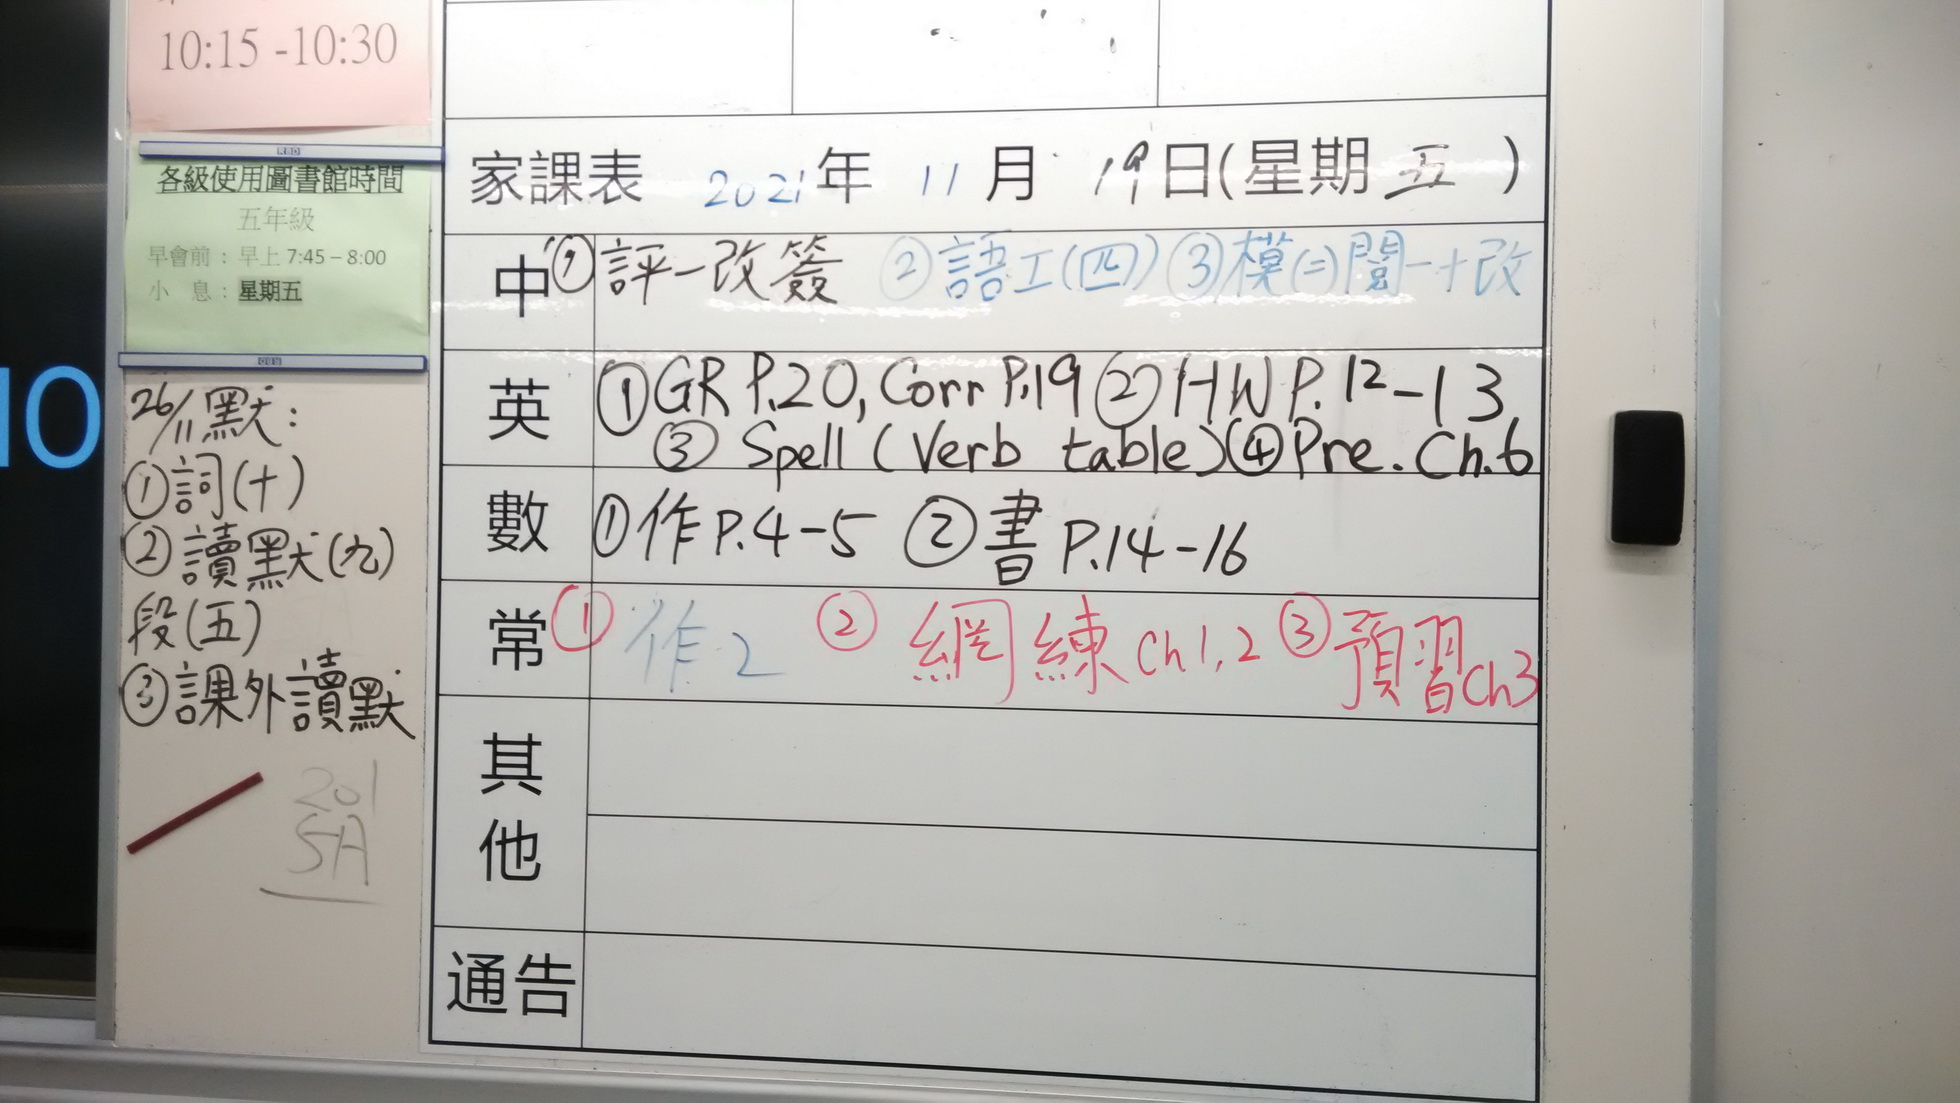 10:15 -10:30
各級使用圖書館時間
五年級
早會前：早上 7:45 – 8:00
小 息：星期五
10
26/11默：
①詞(十)
②讀默(九)
段(五)
③課外讀默
201
5A
家課表 2021年 11月 19日(星期五)
中 ①評一改簽 ②語工(四) ③模(二)閱一+改
英 ①GR P.20, Corr P.19 ②HW P.12-13
③ Spell (Verb table) ④Pre. Ch.6
數 ①作P.4-5 ②書P.14-16
常 ①作2 ②網練Ch1,2 ③預習Ch3
其他
通告